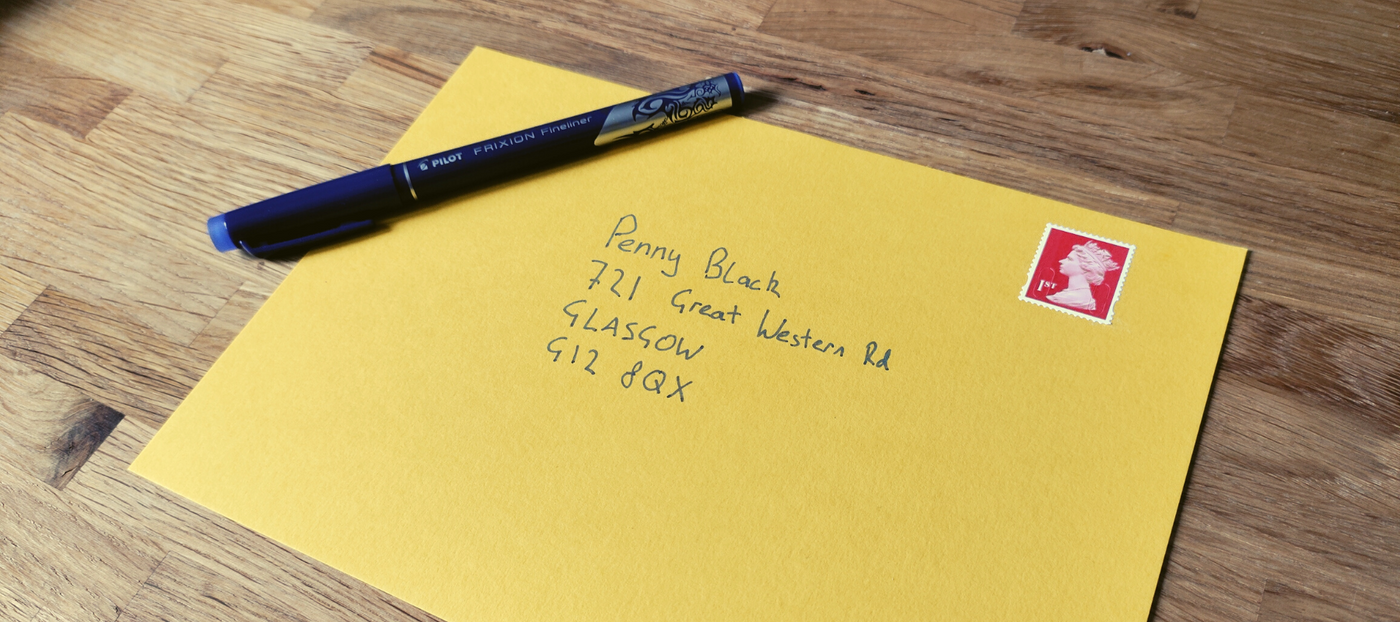 PILOT FRIXION Fineliner
Penny Black
721 Great Western Rd
GLASGOW
G12 8QX
1ST